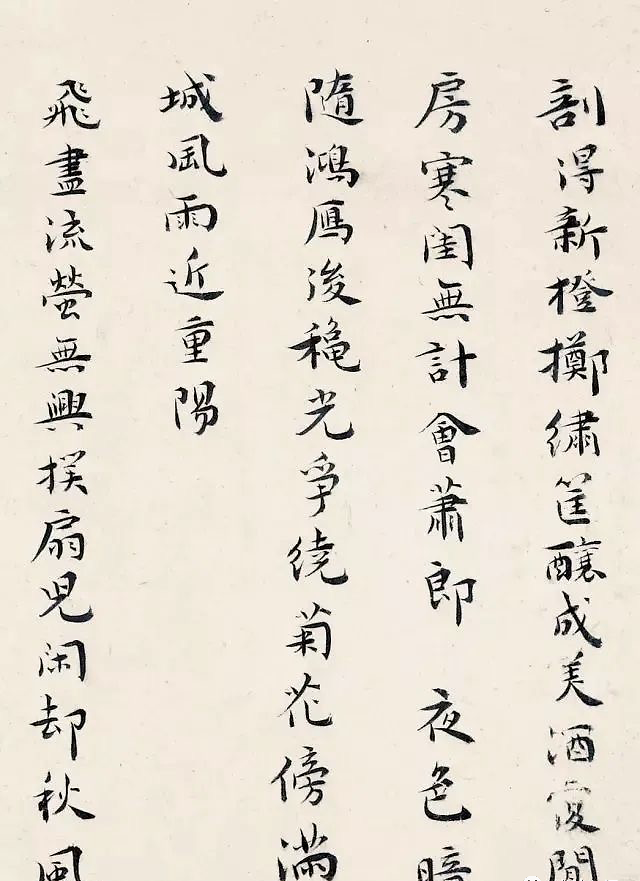 剖得新橙擲繡筐釀成美酒
房寒閨無計會蕭郎 夜色暗
隨鴻雁後穐光爭繞菊花傍滿
城風雨近重陽
飛盡流螢無興撲扇兒閑却秋風